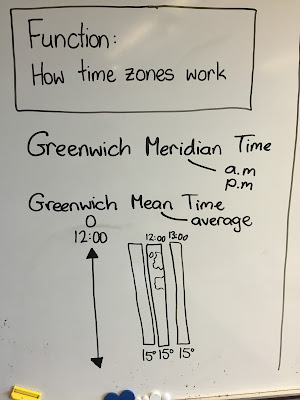 Function:
How time zones work
Greenwich Meridian Time
a.m
p.m
Greenwich Mean Time
average
0
12:00
12:00 13:00
15° 15° 15°